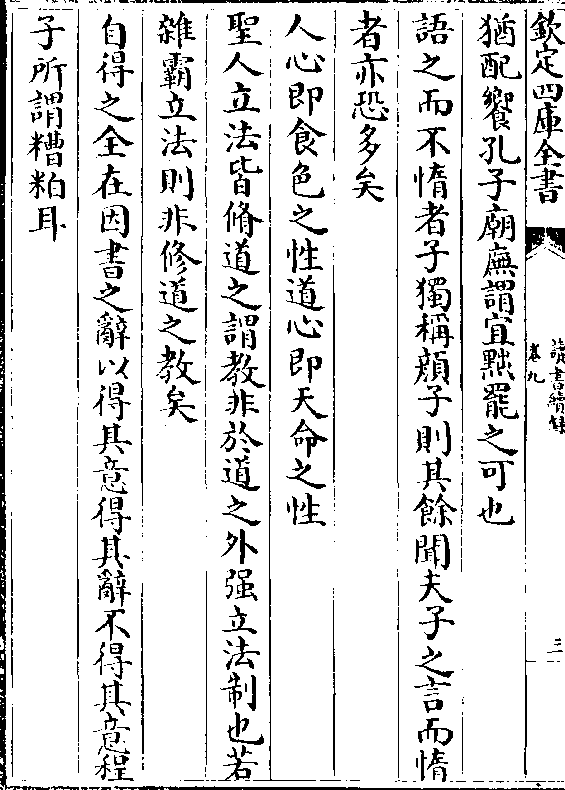 欽定四庫全書
讀書續録
卷九
三
猶配饗孔子廟廡謂宜黜罷之可也
語之而不惰者子獨稱顔子則其餘聞夫子之言而惰
者亦恐多矣
人心即食色之性道心即天命之性
聖人立法皆脩道之謂教非於道之外强立法制也若
雜霸立法則非修道之教矣
自得之全在因書之辭以得其意得其辭不得其意程
子所謂糟粕耳